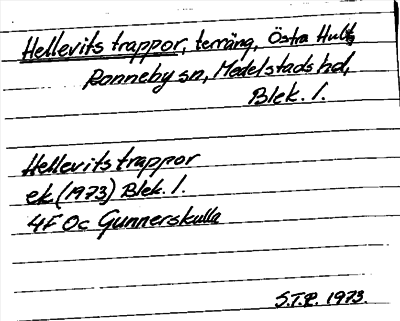 Hellevits trappor, terräng, Östra Hult,
Ronneby sn, Medelstads hd,
Blek. l.
Hellevits trappor
ek. (1973) Blek. l.
4F 0c Gunnerskulla
S.T.P. 1973.